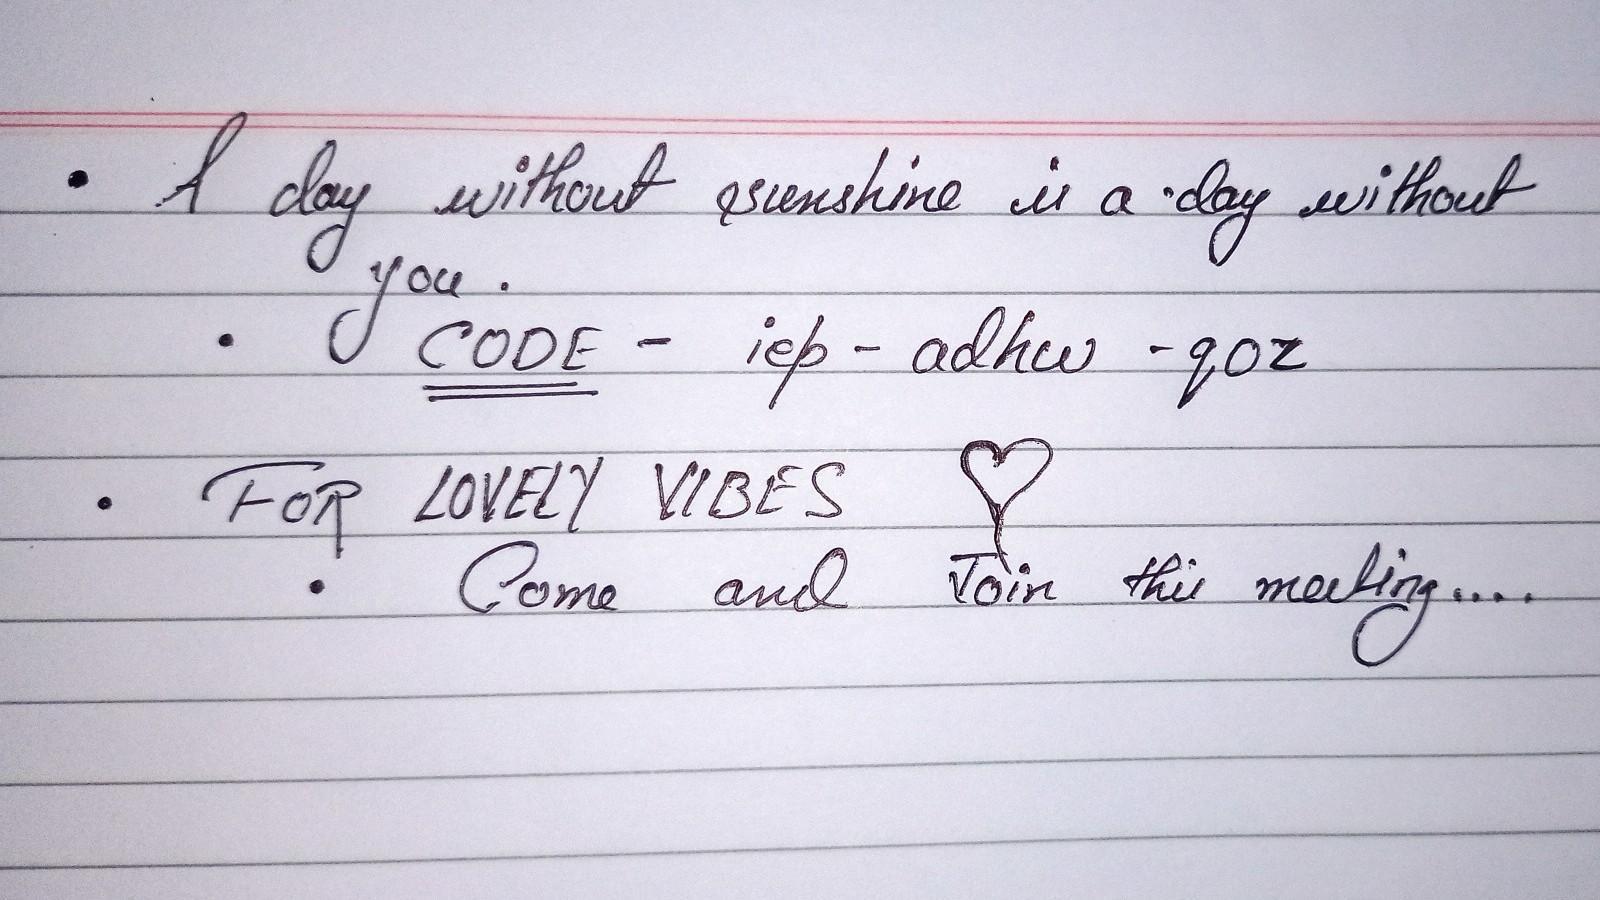 • A day without sunshine is a day without
you.
• CODE - iep - adhw - qoz
• FOR LOVELY VIBES ♡
• Come and Join this meeting....